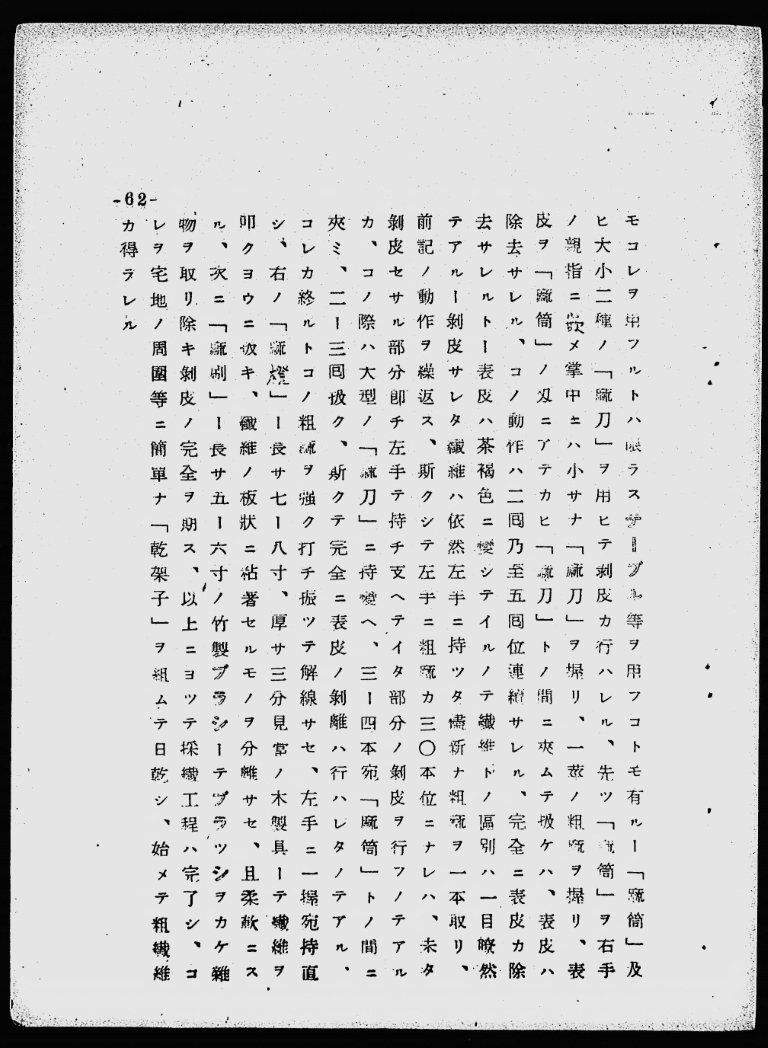 -62-
モコレヲ用フルトハ限ラステーブル等ヲ用フコトモ有ルー「蔴筒」及
ヒ大小二種ノ「蔴刀」ヲ用ヒテ剥皮カ行ハレル、先ツ「蔴筒」ヲ右手
ノ親指ニ嵌メ掌中ニハ小サナ「蔴刀」ヲ握リ、一莖ノ粗蔴ヲ握リ、表
皮ヲ「蔴筒」ノ刄ニアテカヒ「蔴刀」トノ間ニ夾ムテ扱ケハ、表皮ハ
除去サレル、コノ動作ハ二囘乃至五囘位連續サレル、完全ニ表皮カ除
去サレルトー表皮ハ茶褐色ニ變シテイルノテ纖維トノ區別ハ一目瞭然
テアルー剥皮サレタ纖維ハ依然左手ニ持ツタ儘新ナ粗蔴ヲ一本取リ、
前記ノ動作ヲ繰返ス、斯クシテ左手ニ粗蔴カ三〇本位ニナレハ、未タ
剥皮セサル部分卽チ左手テ持チ支ヘテイタ部分ノ剥皮ヲ行フノテアル
カ、コノ際ハ大型ノ「蔴刀」ニ持變ヘ、三ー四本宛「蔴筒」トノ間ニ
夾ミ、二ー三囘扱ク、斯クテ完全ニ表皮ノ剥離ハ行ハレタノテアル、
コレカ終ルトコノ粗蔴ヲ強ク打チ振ツテ解線サセ、左手ニ一握宛持直
シ、右ノ「蔴」ー長サ七ー八寸、厚サ三分見當ノ木製具ーテ纖維ヲ
叩クヨウニ扱キ、纖維ノ板狀ニ粘著セルモノヲ分離サセ、且柔軟ニス
ル、次ニ「蔴刷」ー長サ五ー六寸ノ竹製ブラシーテブラツシヲカケ雜
物ヲ取リ除キ剥皮ノ完全ヲ期ス、以上ニヨツテ採纖工程ハ完了シ、コ
レヲ宅地ノ周圍等ニ簡單ナ「乾架子」ヲ組ムテ日乾シ、始メテ粗纖維
カ得ラレル